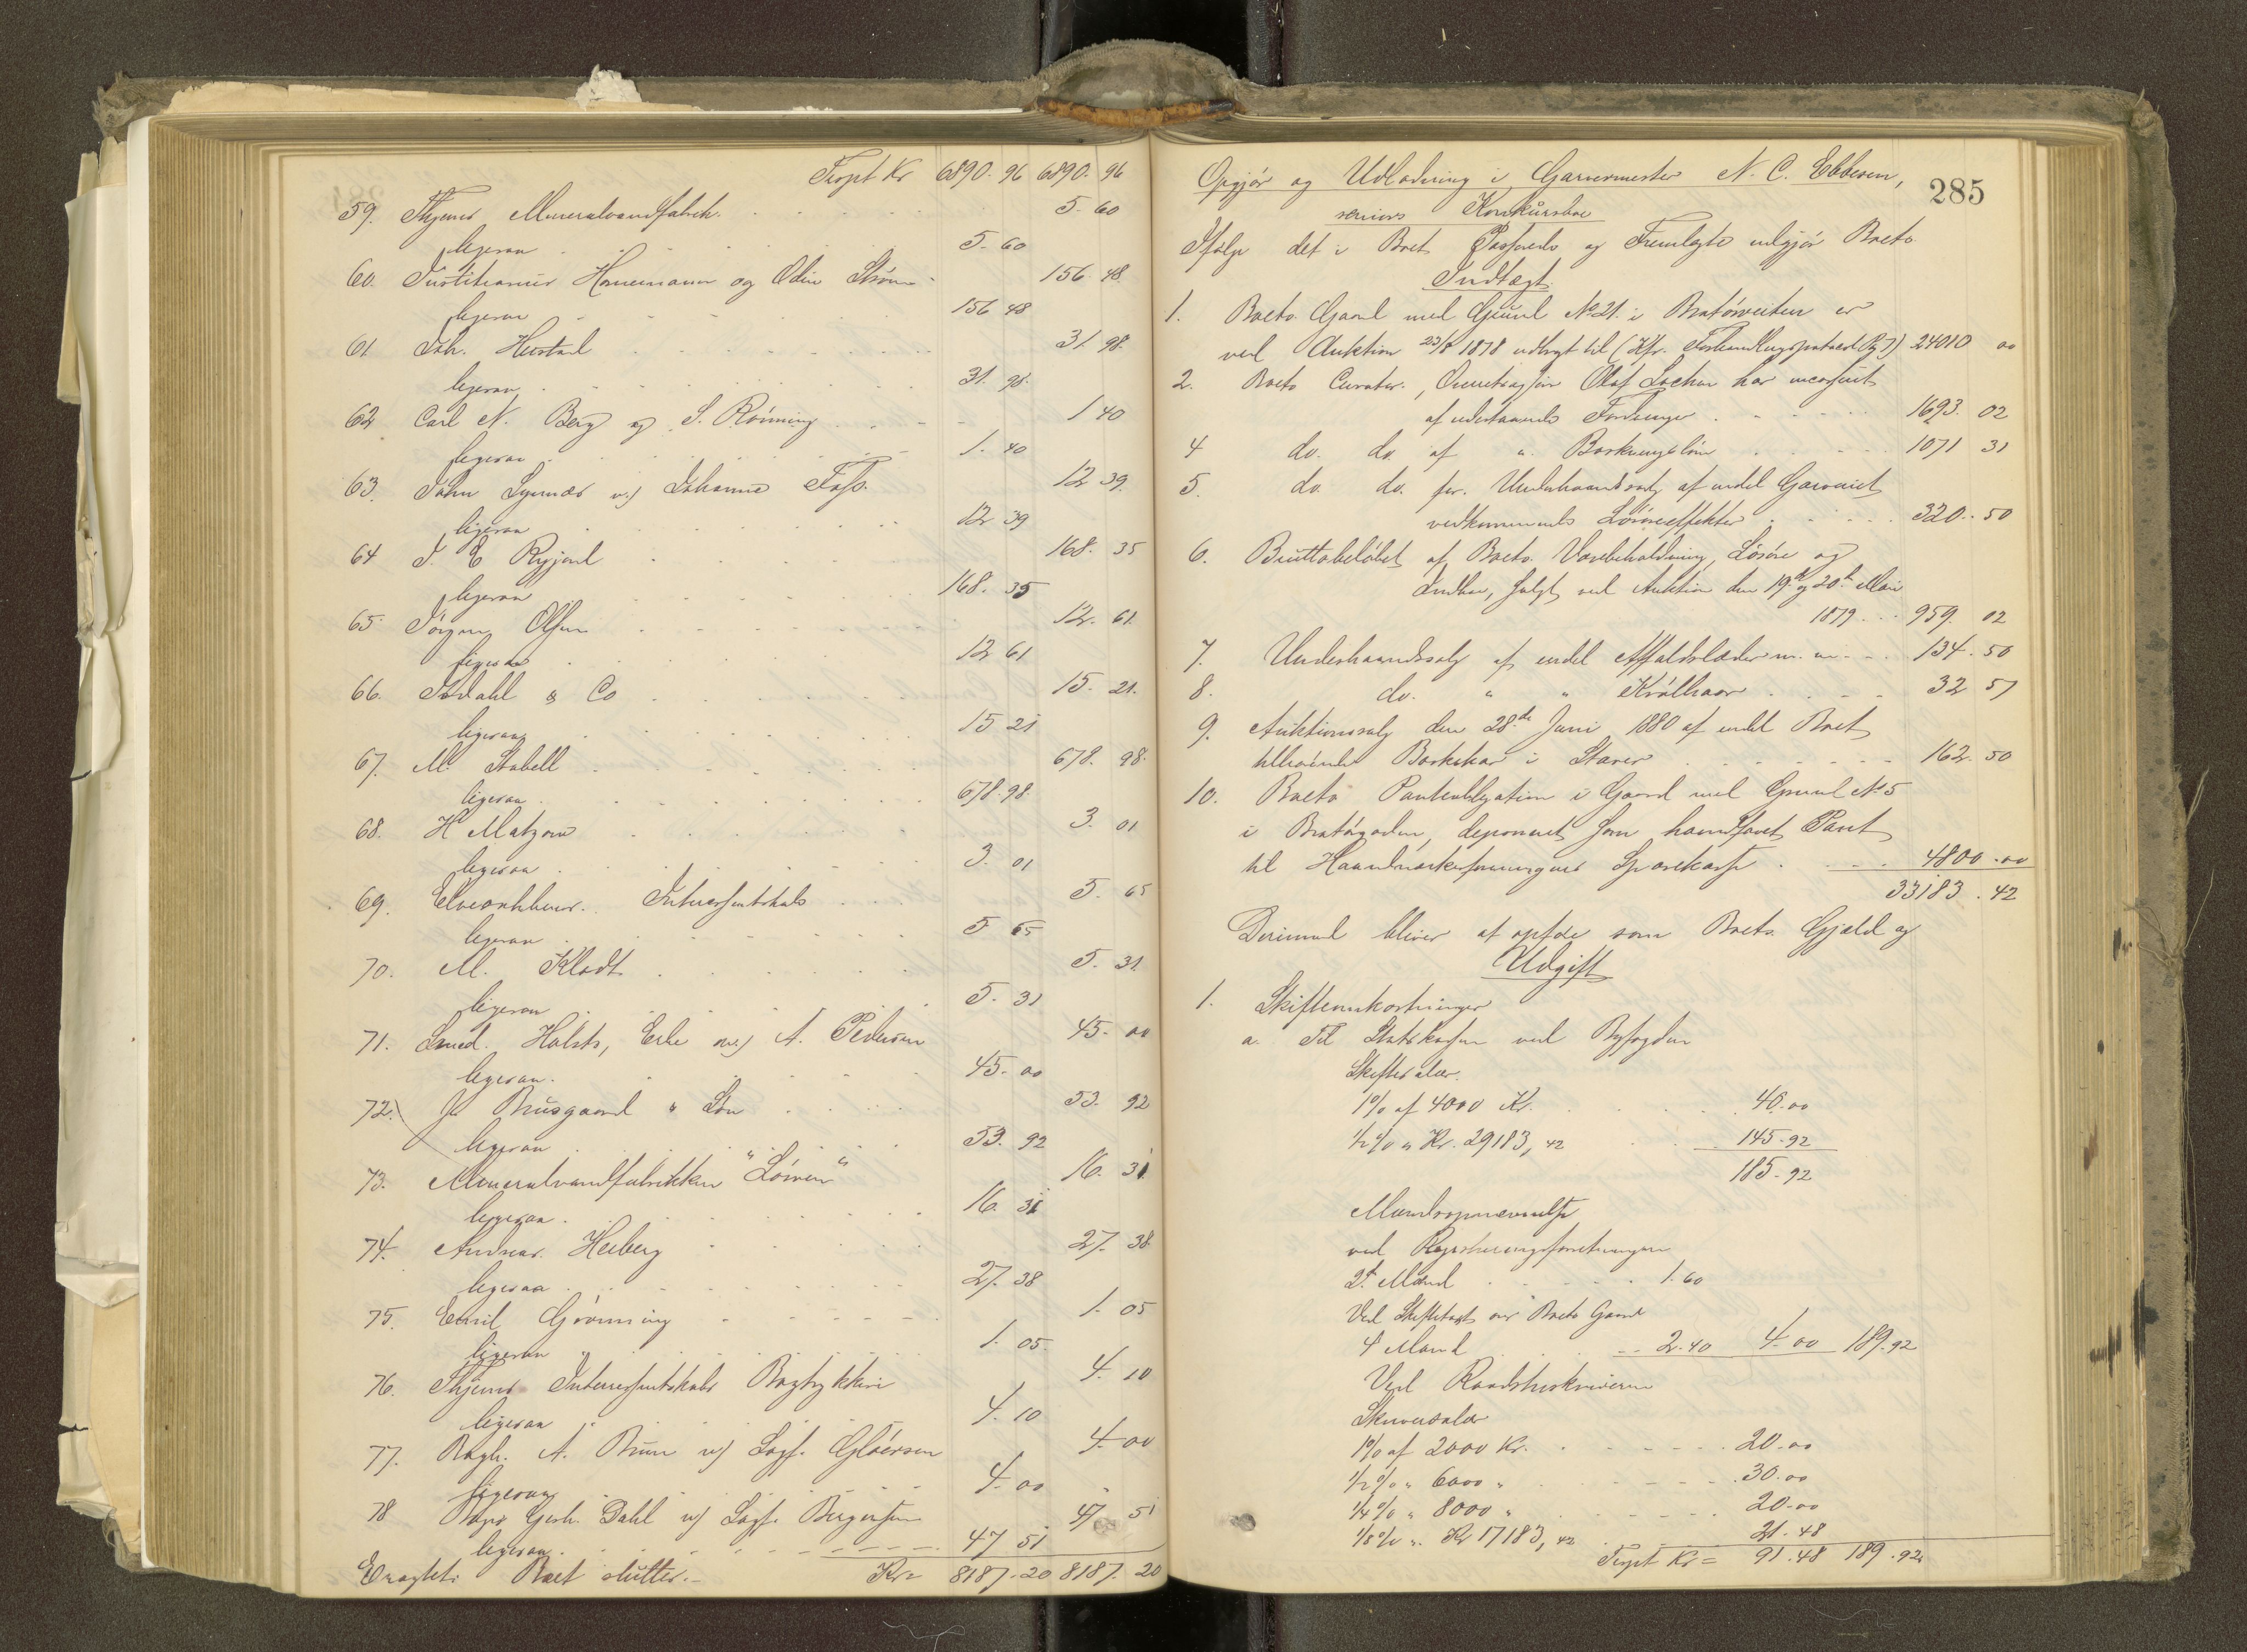 Tropt Kr 6890. 96 6890. 96
59. Thjems Mineralvandfabrik. 5. 60
ligesaa 5. 60
60. Justitiarius Hornemann og Odin Strøm 156 48.
ligesaa 156 48
61 Joh. Hustad 31. 98.
ligesaa 31. 98.
62 Carl N. Berg og S. Rönning 1 40
ligesaa 1. 40
63. John v./ Johannes 12 39.
ligesaa 12 39
64 J. E. 168. 35
ligesaa 168. 35
65 Jörgen Olsen 12. 61.
ligesaa 12 61
66. & Co 15. 21.
ligesaa 15 21
67. M. Stabell 678. 98.
ligesaa 678. 98.
68. H Matzow 3. 01
ligesaa 3. 01
69. Interessentskab 5. 65
ligesaa 5 65
70. M. Kladt 5. 31.
ligesaa 5. 31
71. Smed Halsts, v/ A. Pedersen 45. 00
ligesaa. 45. 00
72. J. Brusgaard & Søn 53. 92
ligesaa 53. 92
73. Mineralvandfabrikken "Löven" 16. 31
ligesaa. 16. 31
74. Andreas Heiberg 27. 38
ligesaa 27. 38
75. Emil Grönning 1. 05
ligesaa 1. 05.
76. Thjems Interessentskabs Bogtrykkeri 4. 10
ligesaa 4. 10
77. Bogh. A. Brun v/ Sagf. Gløersen 4. 00
ligesaa 4. 00
78 Gerh. Dahl v/ Sagf. Birgersen 47 51
ligesaa. 47 51
Boet slutter.- Kr= 8187. 20 8187. 20
285
Opgjör og Udlodning i Garvermester N. C. Ebbesen,
seniors Konkursbo
Ifølge det i Boet Passerede og Fremlagte udgjör Boets
Indtægt.
1. Boets Gaard med Grund No 21. i Bratörveiten er
ved Auktion 23/8 1878 udbragt til (Kfr. Forhandlingsprotocol Pg 7) 24010 00
2. Boets Curator, Overretssagfører Olaf Lochen har incasseret
af udestaaende Fordringer 1693. 02
4 do. do. af " Barkningslön 1071 31
5. do. do. for Underhaandssalg af endel Garveriet
vedkommende Løsöreeffekter 320. 50
6. Bruttobelöbet af Boets Varebeholdning, Løsöre og
Indbo, solgt ved Auktion den 19de og 20de Mai
1879 959. 02
7. Underhaandssalg af endel Affaldslæder m. m. 134. 50
8. do. " " Krölhaar 32 57
9. Auktionssalg den 28de Juni 1880 af endel Boet
tilhörende Barkekar i Staver 162. 50
10. Boets Panteobligation i Gaard med Grund No 5
i Bratörgaden, deponeret som haandfaaet Pant
til Haandværkerforeningens Sparekasse 4800. 00
33183. 42
Derimod bliver at opføre som Boets Gjæld og
Udgift
1. Skifteomkostninger
a. Til Statskassen ved Byfogden
Skiftesalær.
1% af 4000 Kr. 40. 00
1/2 % " Kr. 29183, 42 145. 92
185. 92
Mandsopnævnelse
ved Registreringsforretningen
2de Mænd 1. 60
Ved Skiftetaxt over Boets Gaard
4 Mænd 2. 40 4. 00 189. 92
Ved Raadstueskriveren
Skriversalær
1% af 2000 Kr. 20. 00
1/2 % " 6000 " 30. 00
1/4 % " 8000 " 20. 00
1/8 % " Kr 17183, 42 21. 48
Tropt Kr = 91. 48 189. 92